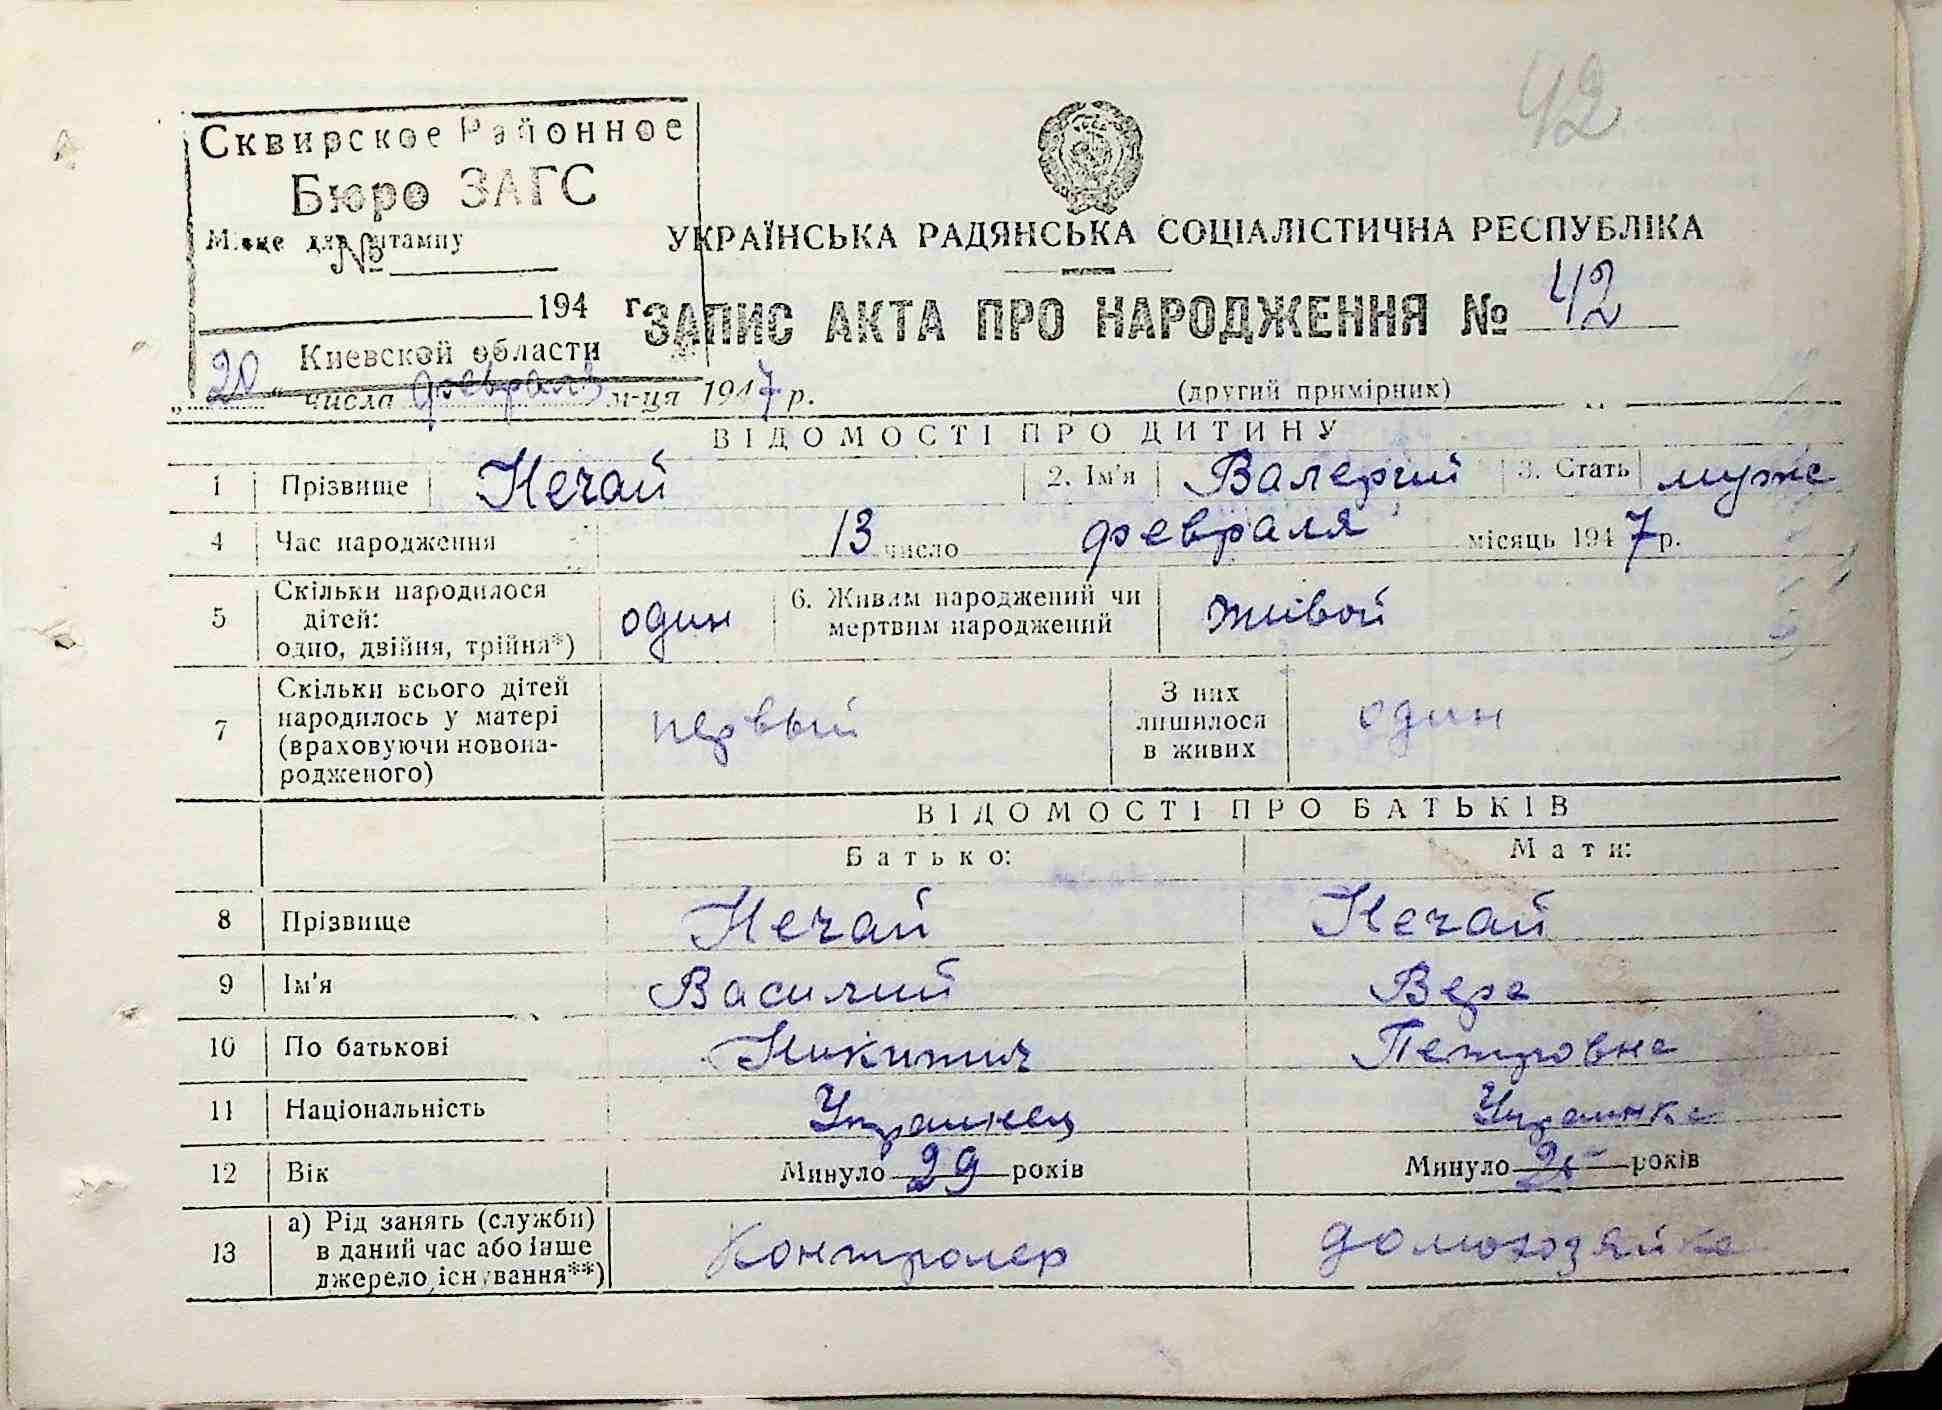 42
Сквирское Районное
Бюро ЗАГС
Місце для штампу
№
194 г.
Киевской области
УКРАЇНСЬКА РАДЯНСЬКА СОЦІАЛІСТИЧНА РЕСПУБЛІКА
ЗАПИС АКТА ПРО НАРОДЖЕННЯ № 42
„20“ числа февраля м-ця 1947 р.
(другий примірник)
ВІДОМОСТІ ПРО ДИТИНУ
1 Прізвище Нечай 2. Ім'я Валерий 3. Стать муж
4 Час народження 13 число февраля місяць 1947 р.
5 Скільки народилося
дітей:
одно, двійня, трійня*)
один
6. Живим народжений чи
мертвим народжений
живой
7 Скільки всього дітей
народилось у матері
(враховуючи новона-
родженого)
первый
З них
лишилося
в живих
один
ВІДОМОСТІ ПРО БАТЬКІВ
Батько: Мати:
8 Прізвище Нечай Нечай
9 Ім'я Василий Вера
10 По батькові Никитич Петровна
11 Національність Украинец Украинка
12 Вік Минуло 29 років Минуло років
13 а) Рід занять (служби)
в даний час або інше
джерело існування**)
Контролер домохозяйка